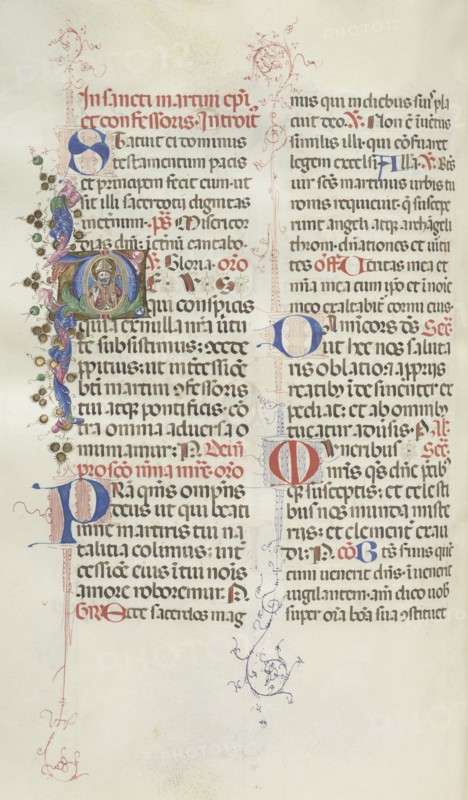 In sancti martini epi
et confessoris. Introit
Statuit ei dominus
testamentum pacis
et principem fecit eum. ut
sit illi sacerdotii dignitas
in eternum. ps Misericor
dias dni: i etnu cantabo.
V. Gloria. oro
DEVS
qui conspicis
quia ex nulla nra uirtu
te subsistimus: concede
ppitius: ut intcessioe
bti martini ofessoris
tui atq pontificis. co
tra omnia aduersa o
muniamur: P. Dein
pro sco mena mre. oro
Pra qms omps
deus ut qui beati
menne martiris tui na
talitia colimus: int
cessioe eius i tui nois
amore roboremur. P.
Gr Ecce sacerdos mag
nus qui in diebus suis pla
cuit deo. V. Non e inuetus
similis illi. qui cosuaret
legem excelsi. Alla. V. Bts
uir scs martinus urbis tu
ronis requieuit. q suscepe
runt angeli atq archageli
throni. dnationes et uirtu
tes. off Veritas mea et
mia mea cum ipso et i noie
meo exaltabit cornu eius.
Da misericors ds Sec
ut hec nos saluta
ris oblatio. a ppriis
reatib i desinenter ex
pediat: et ab omnib
tueatur aduisis. P. Al.
Muneribus Sec
nris qs dne pcib
q susceptis: et celesti
bus nos munda miste
riis: et clementer exau
di: P. co Bts seruus que
cum uenerit dns. i uenerit
uigilantem. am dico uob
super oia boa sua ostituet